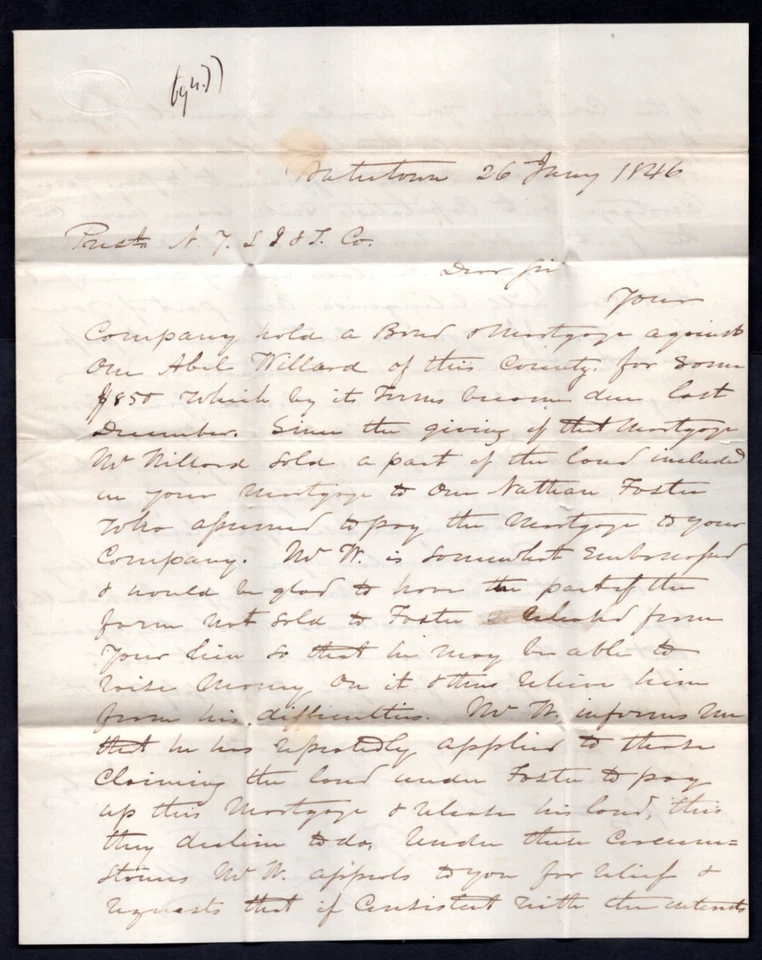 Watertown 26 Jany 1846
Prest N. Y. L I & T. Co.
Dear Sir
Your
Company hold a Bond & Mortgage against
One Abel Willard of this County. for some
$850 which by its Terms became due last
December. Since the giving of that Mortgage
Mr Willard sold a part of the land included
in your Mortgage to One Nathan Foster
who assumed to pay the Mortgage to your
Company. Mr W. is somewhat Embarrassed
& would be glad to have the part of the
farm not sold to Foster released from
your lien so that he may be able to
raise Money On it & thus relieve him
from his difficulties. Mr W. informs me
that he has repeatedly applied to those
Claiming the land under Foster to pay
up this Mortgage & release his land, this
they decline to do, Under these Circum=
stances Mr W. appeals to you for relief &
requests that if Consistent with the interests